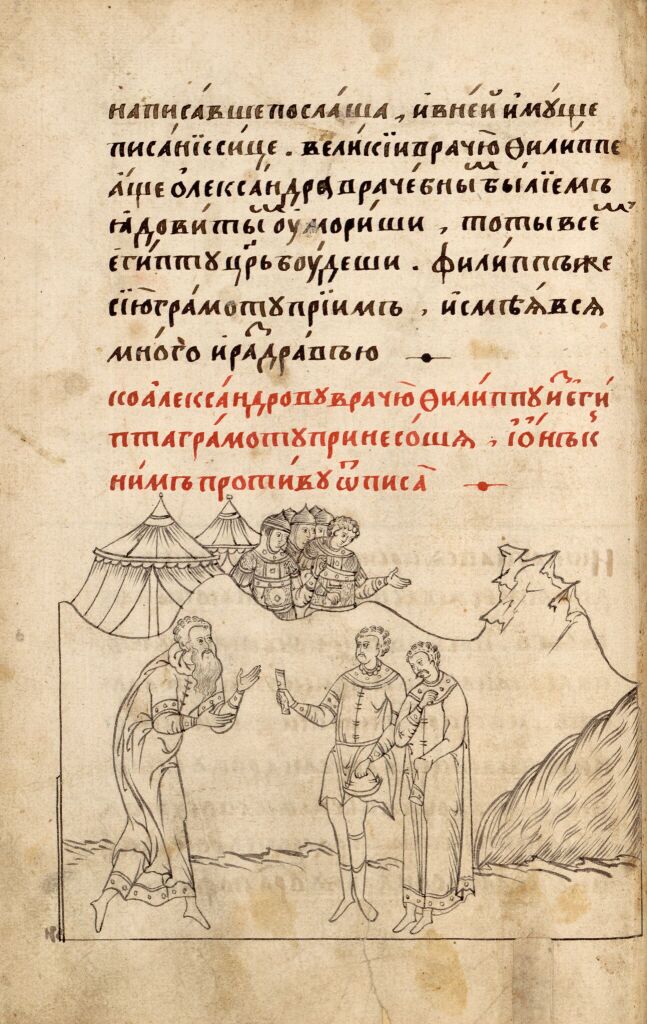 написа́вше посла́ша , и́ в не́й и́мꙋ́ще
писа́нїе си́це . вели́кїи врачю̀ ѳили́ппе
а́ще ѻ́лекса́ндра враче́бны̑ᷟ бы́лїемъ
ꙗ́дови́ты̑ᷟ ѹ҆мори́ши , то ты все̑ᷟ
еги́птꙋ цр҃ь бꙋ́деши . фили́ппъ же
сїю̀ гра́мотꙋ прїи́мъ , и́смѣꙗ́вся
мно́го и҆ ра́дра́въю
ко а́лекса́ндровꙋ врачю̀ ѳили́ппꙋ и́зъ еги́
пта гра́мотꙋ принесо́ша , і҆ ѻ́нъ к
ни́мъ проти́вꙋ ѿписа̀